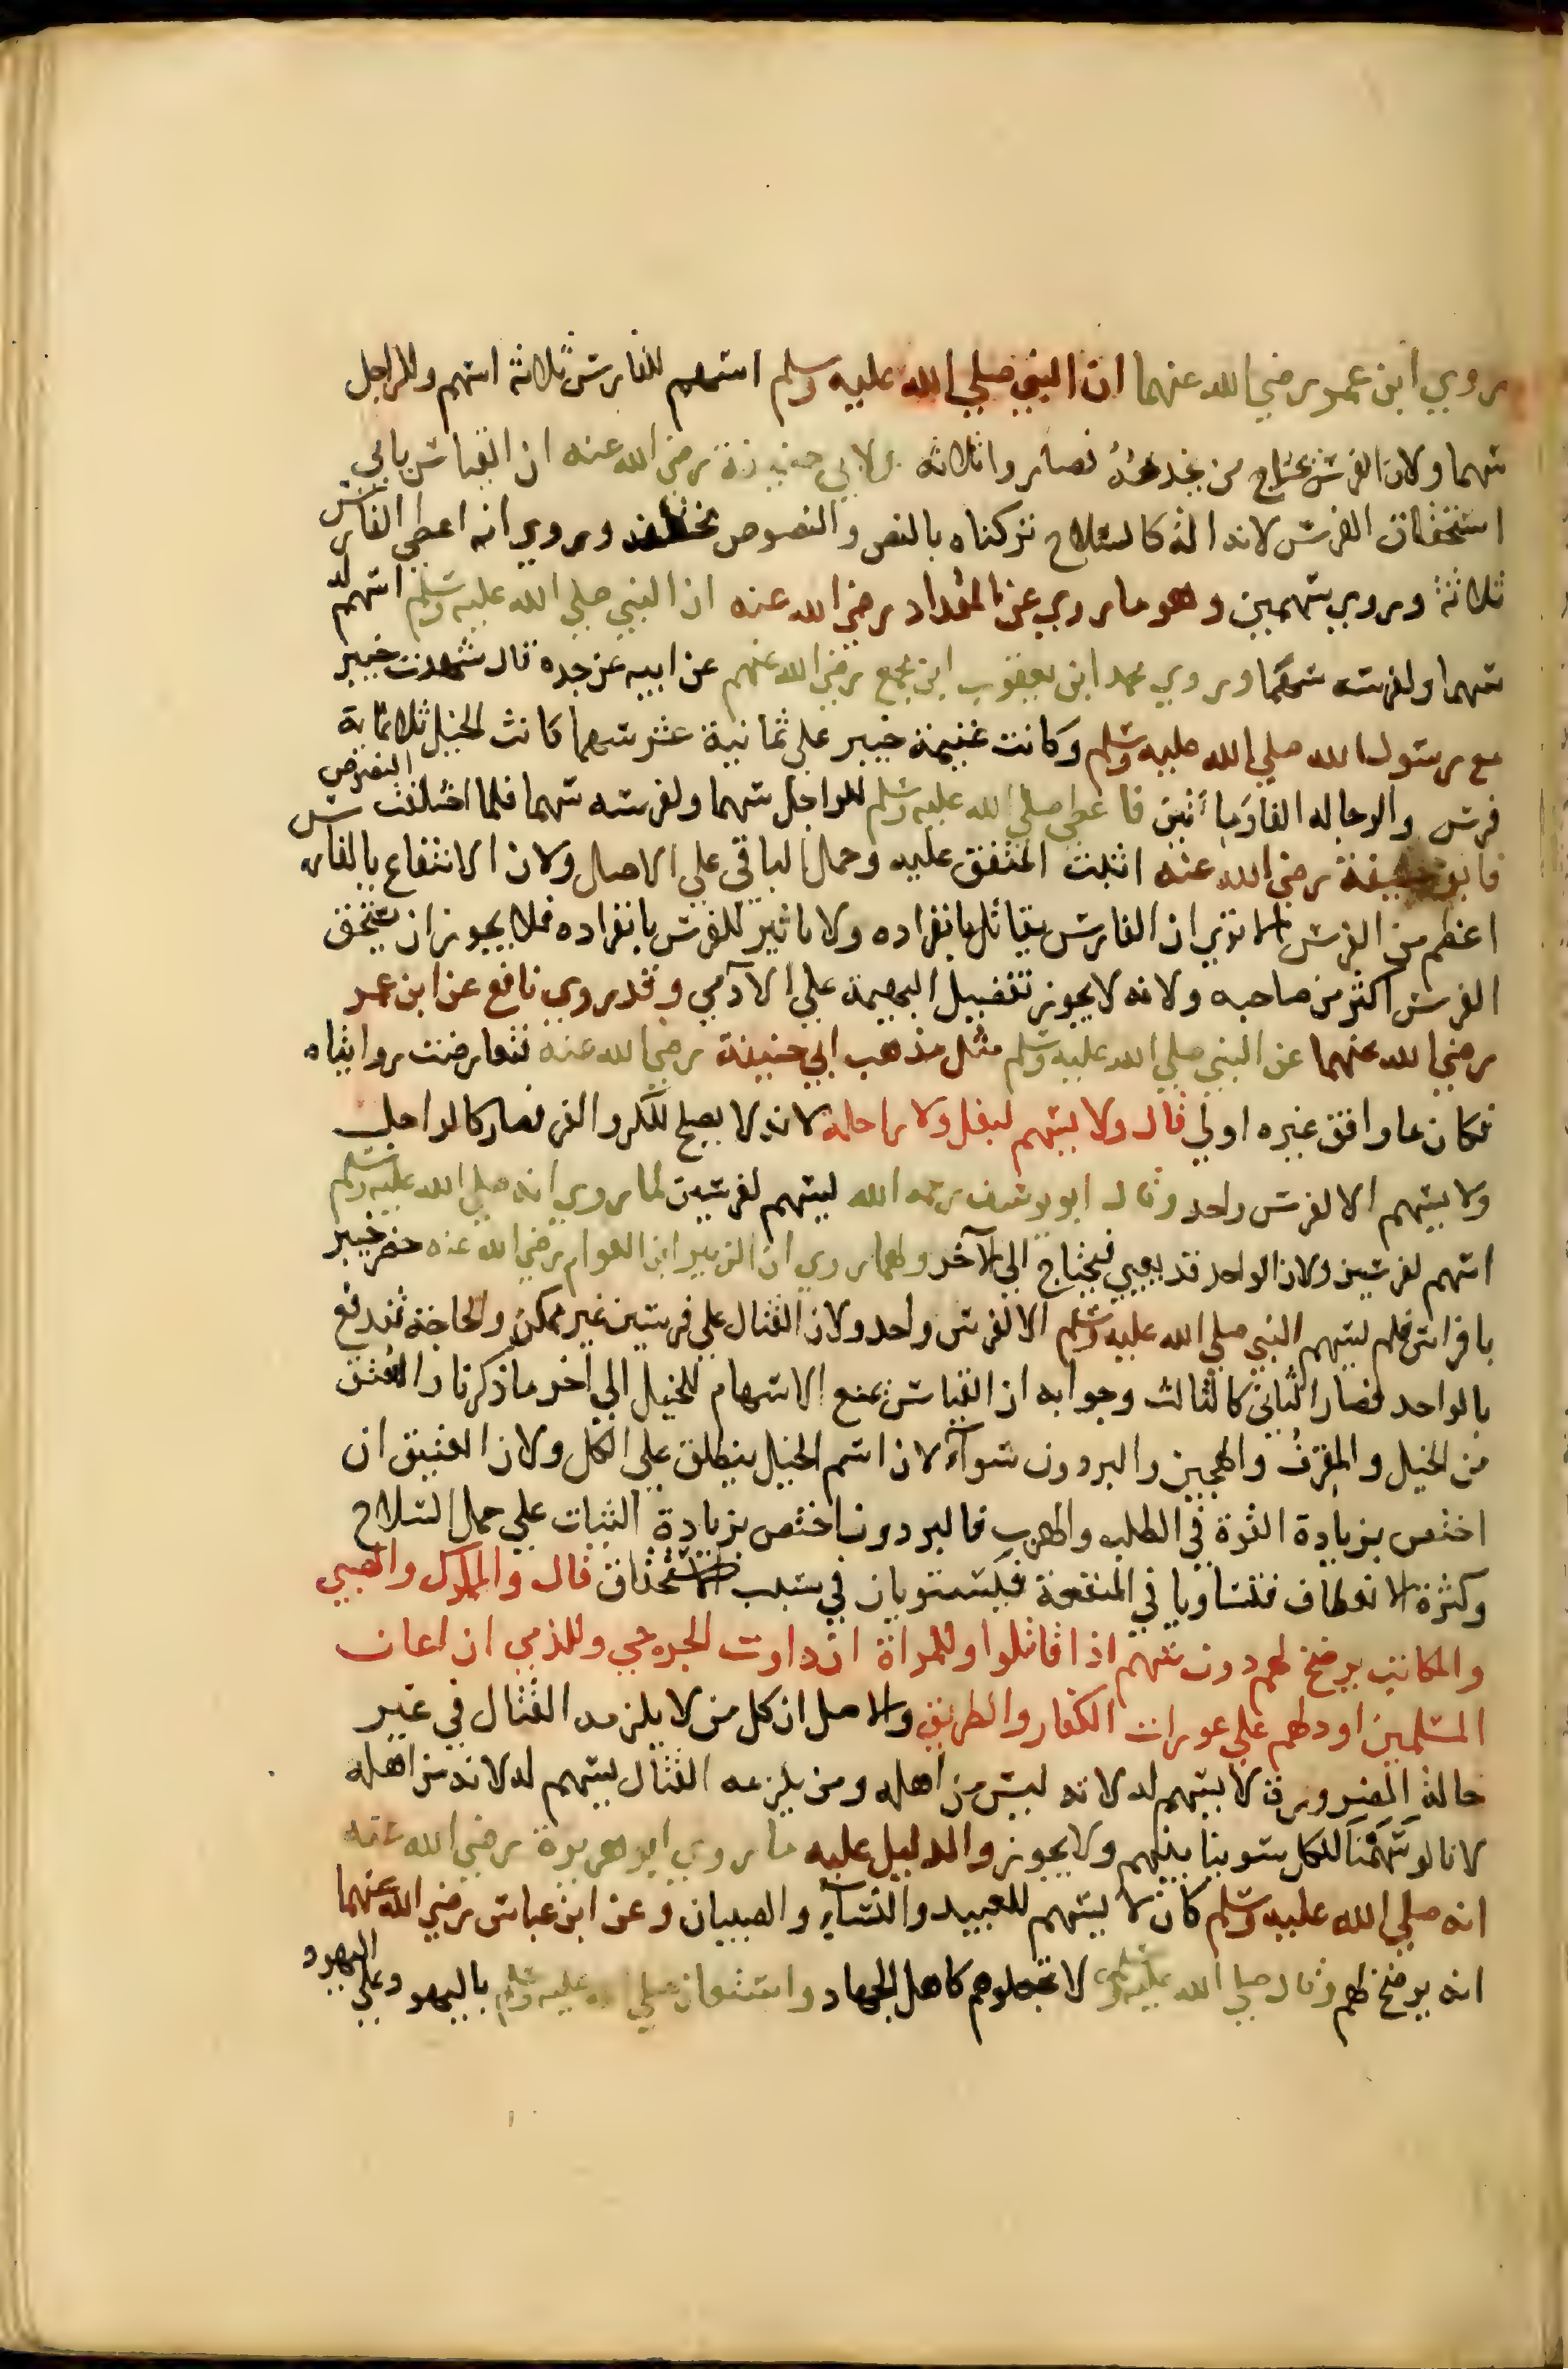 روي ابن عمر رضي الله عنهما ان النبي صلي الله عليه وسلم اسهم للفارس ثلاثة اسهم وللراجل
سهما ولان الفرس يحتاج من يخدمه فصاروا ثلاثة ولابي حنيفة رضي الله عنه ان القياس يابي
استحقاق الفرس لانه الة كالسلاح تركناه بالنص والنصوص مختلفة وروي انه اعطي الفارس
ثلاثة وروي سهمين وهو ما روي عن المقداد رضي الله عنه ان النبي صلي الله عليه وسلم اسهم له
سهما ولفرسه سهما وروي محمد ابن يعقوب ابن مجمع رضي الله عنهم عن ابيه عن جده قال شهدت خيبر
مع رسول الله صلي الله عليه وسلم وكانت غنيمة خيبر علي ثمانية عشر سهما كانت الخيل ثلاثماية
فرس والرجاله الفا ومأتين فاعطي صلي الله عليه وسلم للراجل سهما ولفرسه سهما فلما اختلفت النصوص
فابو حنيفة رضي الله عنه اثبت المتفق عليه وحمل الباقي علي الاصل ولان الانتفاع بالفارس
اعظم من الفرس الا تري ان الفارس يقاتل بانفراده ولا تاثير للفرس بانفراده فلا يجوز ان يستحق
الفرس اكثر من صاحبه ولانه لا يجوز تفضيل البهيمة علي الآدمي وقد روي نافع عن ابن عمر
رضي الله عنهما عن النبي صلي الله عليه وسلم مثل مذهب ابي حنيفة رضي الله عنه فتعارضت روايتاه
فكان ما وافق غيره اولي قال ولا يسهم لبغل ولا راحلة لانه لا يصلح للكر والفر فصار كالراجل
ولا يسهم الا لفرس واحد وقال ابو يوسف رحمه الله يسهم لفرسين لما روي انه صلي الله عليه وسلم
اسهم لفرسين ولان الواحد قد يعيي فيحتاج الي الآخر ولهما روي ان الزبير ابن العوام رضي الله عنه حضر خيبر
بافراس فلم يسهم النبي صلي الله عليه وسلم الا لفرس واحد ولان القتال علي فرسين غير ممكن والحاجة تندفع
بالواحد فصار الثاني كالثالث وجوابه ان القياس يمنع الاسهام للخيل الي آخر ما ذكرنا والعتق
من الخيل والمقرف والهجين والبردون سوآء لان اسم الخيل ينطلق علي الكل ولان العتيق ان
اختص بزيادة القوة في الطلب والهرب فالبردون اختص بزيادة الثبات علي حمل السلاح
وكثرة الانعطاف فتساويا في المنفعة فيستويان في سبب الاستحقاق قال والمملوك والصبي
والمكاتب يرضخ لهم دون سهم اذا قاتلوا وللمراة ان داوت الجرحي وللذمي ان اعان
المسلمين او دلهم علي عورات الكفار والطريق والاصل ان كل من لا يلزمه القتال في غير
حالة الضرورة لا يسهم له لانه ليس من اهله ومن يلزمه القتال يسهم له لانه من اهله
لانا لو سهمنا للكل سوينا بينهم ولا يجوز والدليل عليه ما روي ابو هريرة رضي الله عنه
انه صلي الله عليه وسلم كان لا يسهم للعبيد والنسآء والصبيان وعن ابن عباس رضي الله عنهما
انه يرضخ لهم وقال صلي الله عليه وسلم لا تجعلوهم كاهل الجهاد واستعان صلي الله عليه وسلم باليهود علي اليهود